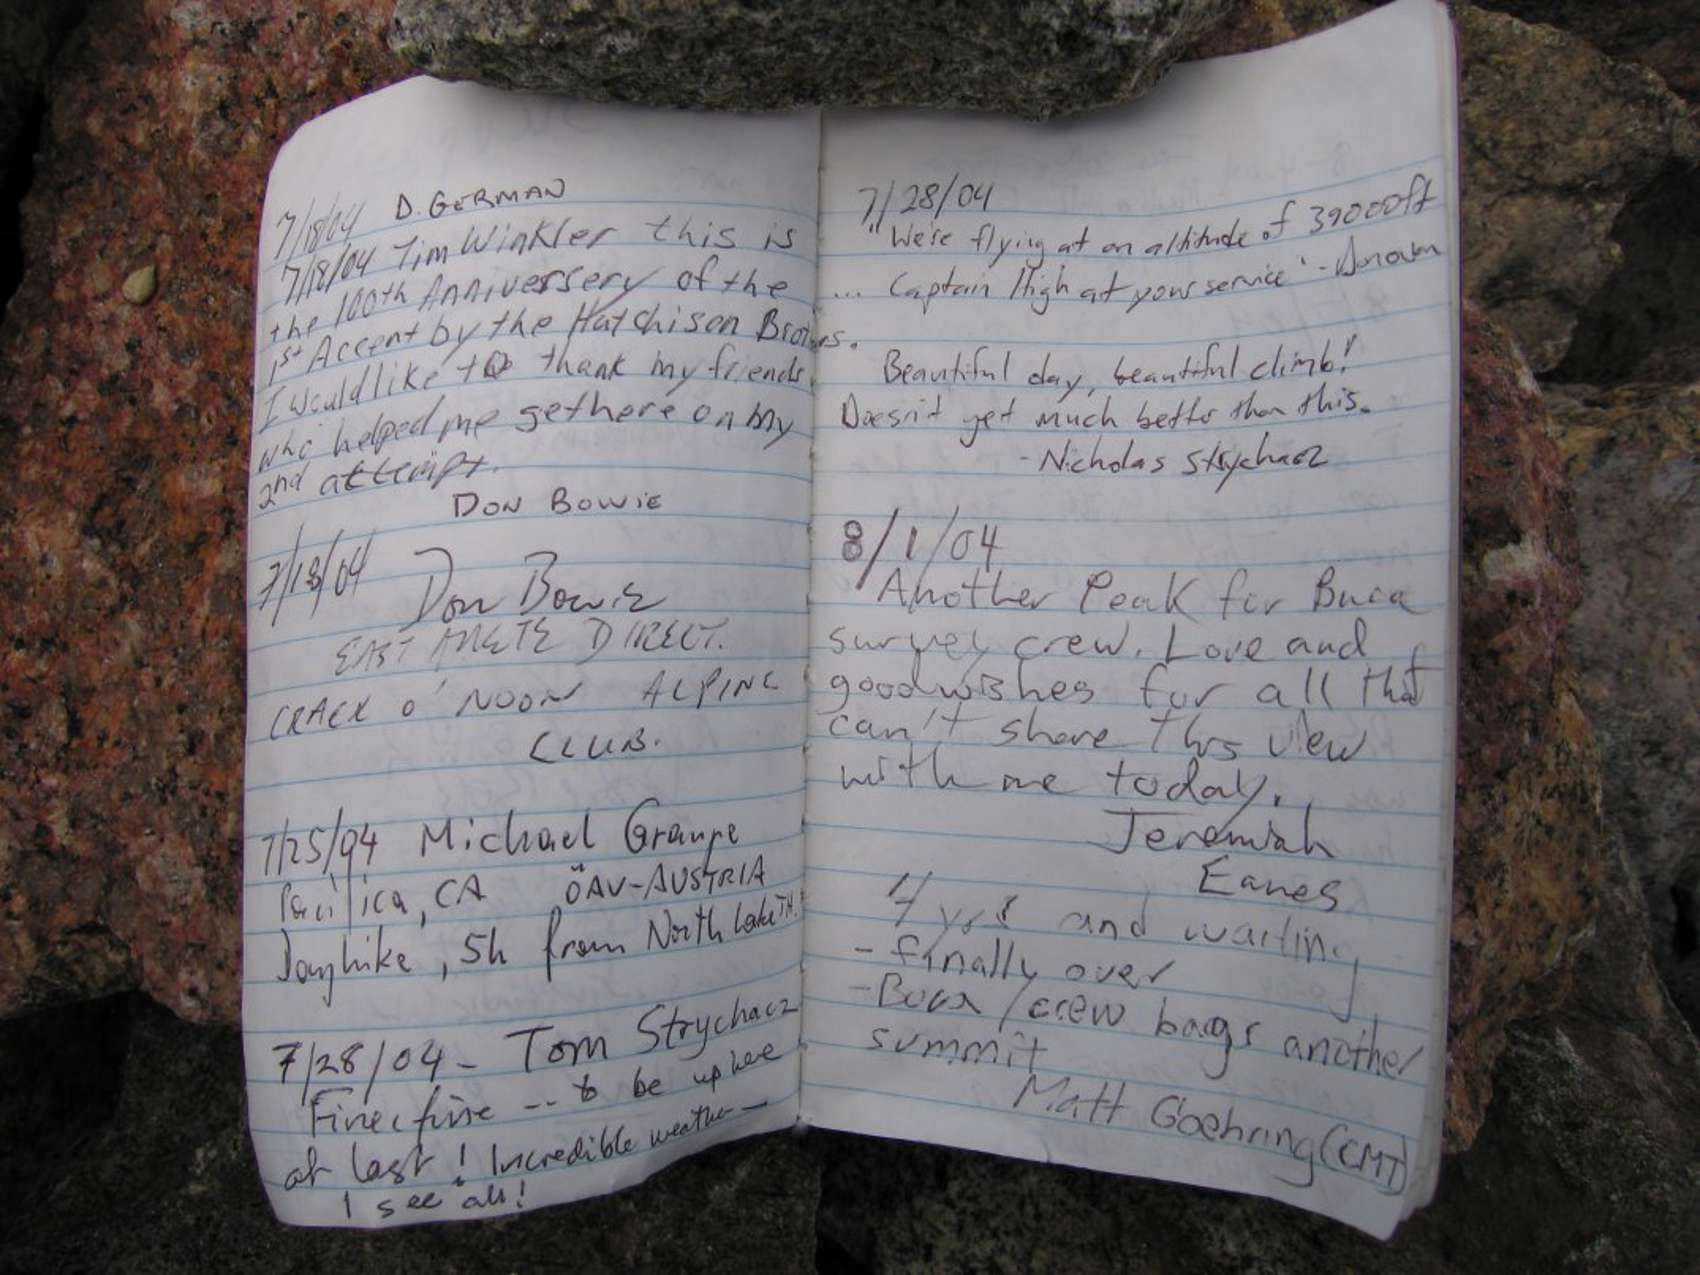 7/18/04 D. GERMAN
7/18/04 Tim Winkler this is
the 100th Anniversery of the
1st Accent by the Hutchison Brothers.
I would like to thank my friends
who helped me get here on my
2nd attempt.
DON BOWIE
7/18/04 Don Bowie
EAST ARETE DIRECT.
CRACK O' NOON ALPINE
CLUB.
7/25/04 Michael
Pacifica, CA ÖAV-AUSTRIA
Dayhike, 5h from North Lake TH.
7/28/04 - Tom Strychacz
Fine, fine -- to be up here
at last! Incredible weather --
I see all!
7/28/04
"We're flying at an altitude of 39000ft
... Captain High at your service" - Donovan
Beautiful day, beautiful climb!
Doesn't get much better than this.
- Nicholas Strychacz
8/1/04
Another Peak for Buca
survey crew. Love and
good wishes for all that
can't share this view
with me today.
Jeremiah
Eanes
4 yrs and waiting
- finally over
- Buca crew bags another
summit
Matt Goehring (CMT)